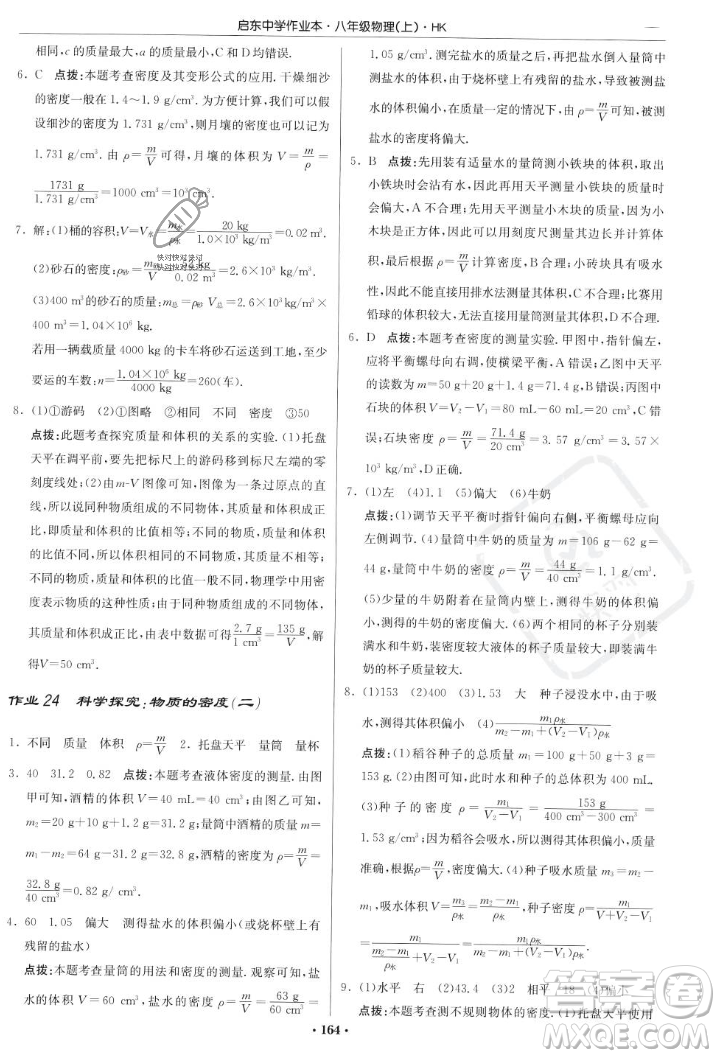 启东中学作业本·八年级物理(上)·HK
相同，c的质量最大，a的质量最小，D错误。
6. C 点拨：本题考查密度及其变形公式的应用. 干燥细沙
的密度一般在 1.4～1.9 g/cm³，结合选项估算，我们可以假
设细沙的密度为 1.731 g/cm³，则月壤的体积也为
1.731 g/cm³. 由 ρ=m/V 可得，月壤的体积为 V=m/ρ=
1731 g/1.731 g/cm³=1000 cm³=10³ cm³.
7. 解：(1)桶的容积：V=V水=m水/ρ水=20 kg/1.0×10³ kg/m³=0.02 m³
(2)砂石的密度：ρ砂=m/V 0.02 m³=2.6×10³ kg/m³
快对快对快对
快对快对快对
(3)400 m³的砂石的质量：m总=ρ砂V总=2.6×10³ kg/m³×
400 m³=1.04×10⁶ kg
若用一辆载质量 4000 kg的卡车将砂石运送到目的地，至
少要运的车数：n=1.04×10⁶ kg/4000 kg=260(车).
8. (1)①游码 (2)①图略 ②相同 不同 密度 ③50
点拨：此题考查探究质量和体积的关系的实验. (1)托盘
天平在调平前，要先把标尺上的游码移到标尺左端的零刻
度线处. (2)由 m-V 图像可知，图像为一条过原点的直
线，所以说明：不同种物质组成的不同物体，其质量与体积
的比值不同. 同种物质组成的不同物体，其质量与体积的
比值相同. 同种物质组成的不同物体，物理学中用密度表
示物质的这种性质；由图像可知，由同种物质组成的不同
物体，质量与体积成正比，故由表中数据可得 2.7 g/1 cm³=135 g/V，
解得V=50 cm³.
作业 24 科学探究：物质的密度(二)
1. 不同 质量 体积 ρ=m/V 2. 托盘天平 量筒 量杯
3. 40 31.2 0.82 点拨：本题考查液体密度的测量. 由图
甲可知，酒精的体积为 V=40 mL=40 cm³；由图乙可知，
烧杯和剩余酒精的总质量 m₁=31.2 g；量筒中酒精的质量
m=m总-m₁=64 g-31.2 g=32.8 g，酒精的密度 ρ=m/V=
32.8 g/40 cm³=0.82 g/cm³.
4. 60 1.05 偏大 测得盐水的体积偏小(或烧杯壁上有
残留的盐水)
点拨：本题考查量筒的用法和密度的测量. 观察可知，盐
水的体积为 60 mL=60 cm³，盐水的密度 ρ=m/V=63 g/60 cm³=
1.05 g/cm³. 测完盐水的质量后，再把盐水倒入量筒中
测量盐水的体积，由于烧杯壁上有残留的盐水，会
导致被测体积偏小，在质量一定的情况下，由 ρ=m/V可知，被测
盐水的密度将偏大.
5. B 点拨：先用装有适量水的量筒测小铁块的体积，取出
小铁块时会沾有水，再用天平测小铁块的质量时，测量结
果会偏大，A 不合理；先用天平测量小木块的质量，由于小
木块是规则的长方体，因此可以用刻度尺测量其边长并计
算体积，最后由 ρ=m/V 计算密度，B 合理；小砖块具有吸水
性，因此不能直接用排水法测量其体积，C 不合理；比赛用
铅球的体积较大，无法放入量筒测体积，D 不合理.
6. D 点拨：本题考查密度的测量实验. 甲图中，指针偏右，
应将平衡螺母向左调，使横梁平衡，A 错误；乙图中石块的
质量 m=50 g+20 g+1.4 g=71.4 g，B 错误；丙图中
石块的体积 V=V₂-V₁=80 mL-60 mL=20 cm³，C 错
误；石块密度 ρ=m/V=71.4 g/20 cm³=3.57 g/cm³=3.57×
10³ kg/m³，D 正确.
7. (1)左 (4)1.1 (5)偏大 (6)牛奶
点拨：(1)调节天平平衡时指针偏向右侧，平衡螺母应向左
调. (4)量筒中牛奶的质量 m=106 g-62 g=
44 g，量筒中牛奶的密度 ρ=m/V=44 g/40 cm³=1.1 g/cm³.
(5)少量的牛奶附着在量筒内壁上，测得牛奶的体积偏
小，测得的密度偏大. (6)两个相同的杯子分别装
满牛奶和水，装密度较大液体的杯子质量较大，装满牛
奶的杯子质量较大.
8. (1)153 (2)400 (3)1.53 大 种子浸没水中，由于吸
水，测得其体积偏小 (4)m₁ρ水/m₂-m₁+(V₂-V₁)ρ水
点拨：(1)稻谷种子的总质量 m₁=100 g+50 g+3 g=
153 g. (2)由图可知，此时水和种子的总体积为 400 cm³.
(3)种子的密度 ρ=m₁/V₂-V₁=153 g/400 cm³-300 cm³=
1.53 g/cm³. 因为稻谷会吸水，所以测量的体积偏小，质量
准确，根据 ρ=m/V 可知，密度偏大. (4)吸水质量 m₃=m₂-
m₁，吸水体积 V=m₃/ρ水=m₂-m₁/ρ水，种子的密度 ρ=m₁/V+V₂-V₁
=m₁/m₂-m₁/ρ水+V₂-V₁=m₁ρ水/m₂-m₁+(V₂-V₁)ρ水.
9. (1)水平 右 (2)43.4 (3)2 相平 18 (4)偏小
点拨：本题考查测不规则物体的密度. (1)托盘天平使用
·164·
答案圈
MXQE.COM